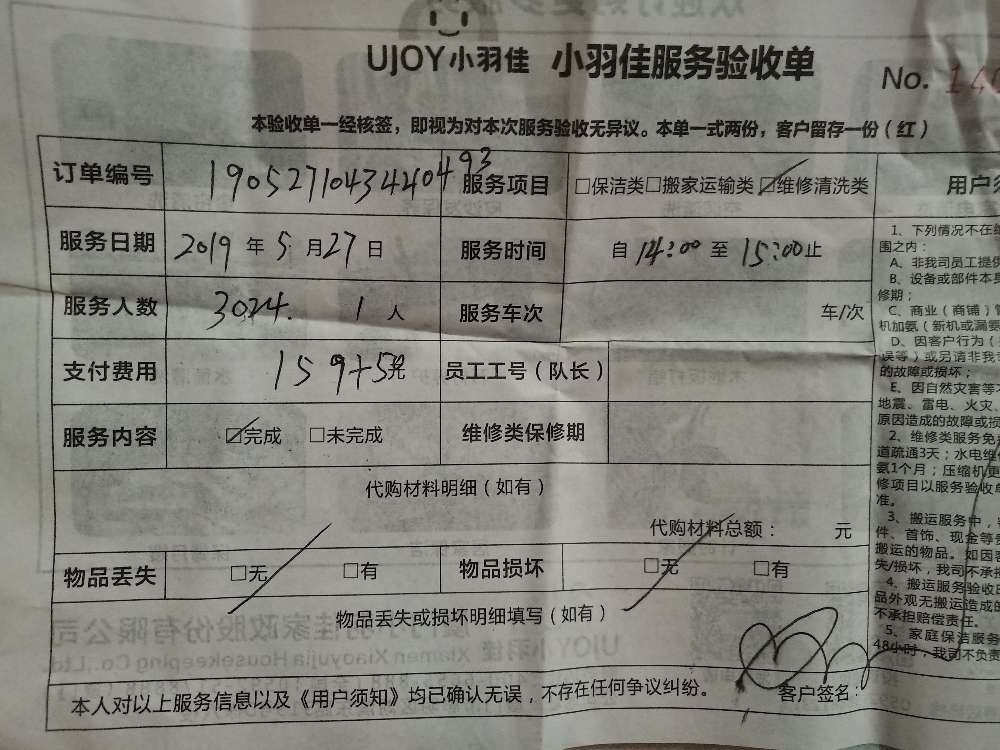 UJOY小羽佳 小羽佳服务验收单
No. 140
本验收单一经核签，即视为对本次服务验收无异议。本单一式两份，客户留存一份（红）
订单编号 1905271043440493 服务项目 □保洁类□搬家运输类☑维修清洗类
服务日期 2019 年 5 月 27 日 服务时间 自 14:00 至 15:00 止
服务人数 3024. 1 人 服务车次 车/次
支付费用 159+5元 员工工号（队长）
服务内容 ☑完成 □未完成 维修类保修期
代购材料明细（如有）
代购材料总额： 元
物品丢失 □无 □有 物品损坏 □无 □有
物品丢失或损坏明细填写（如有）
本人对以上服务信息以及《用户须知》均已确认无误，不存在任何争议纠纷。 客户签名：
用户须
1、下列情况不在维
围之内：
A、非我司员工提供
B、设备或部件本身
修期；
C、商业（商铺）
机加氨（新机或漏氨
D、因客户行为（
误等）或另请非我
的故障或损坏；
E、因自然灾害等
地震、雷电、火灾、
原因造成的故障或损
2、维修类服务免
道疏通3天；水电维
氨1个月；压缩机更
修项目以服务验收单
准。
3、搬运服务中，
件、首饰、现金等
搬运的物品。如因客
失/损坏，我司不承担
4、搬运服务验收
品外观无搬运造成的
不承担赔偿责任。
5、家庭保洁服务
48小时，我司不负责